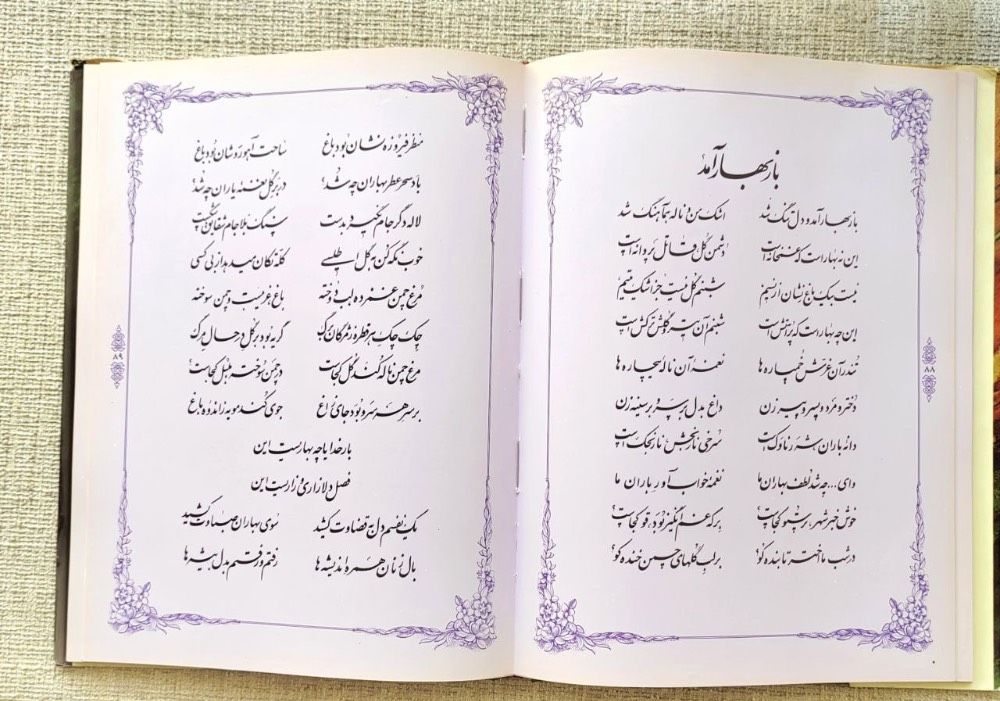 باز بهار آمد
باز بهار آمد و دل تنگ شد اشک من و ناله هماهنگ شد
این نه بهار است که غمخانه است دشمن گل قاتل پروانه است
نیست به یک باغ نشان از نسیم شبنم گل نیست جز اشک یتیم
این چه بهار است که پر آتش است شبنم آن تیر ترکش است
تندر آن غرش خمپاره ها نغمه آن ناله بیچاره ها
دختر و مرد و پسر و پیر زن داغ بدل بر سر و بر سینه زن
دانه باران همه سرخی نارنجش نارنجک است
وای... چه شد لطف بهاران ما نغمه خواب آور باران ما
خوش خبر شهر، پرستو کجاست؟ برکه غم انگیز بود، قو کجاست؟
در شب ما اختر تابنده کو؟ بر لب گلهای چمن خنده کو؟
۸۸
منظر فیروزه نشان بود باغ ساحت آهو روشان بود باغ
باد سحر عطر بهاران چه شد؟ در بر گل نغمه یاران چه شد؟
لاله دگر جام نگیرد بدست سنگ بلا جام شقایق شکست
خوب نگه کن به گل اطلسی کله تکان میدهد از بی کسی
مرغ چمن غمزده لب دوخته باغ غریب است و چمن سوخته
چک چک هر قطره ز مژگان برگ گریه بود بر گل در حال مرگ
مرغ چمن ناله کند گل کجاست در چمن سوخته بلبل کجاست؟
بر سر هر سرو بود جای زاغ جوی کند مویه ز اندوه باغ
بار خدایا چه بهاریست این
فصل دلازاری و زاریست این
یک نفسم دل به قضاوت کشید سوی بهاران صباوت کشید
بال زنان همره اندیشه ها رفتم و رفتم بدل بیشه ها
۸۹